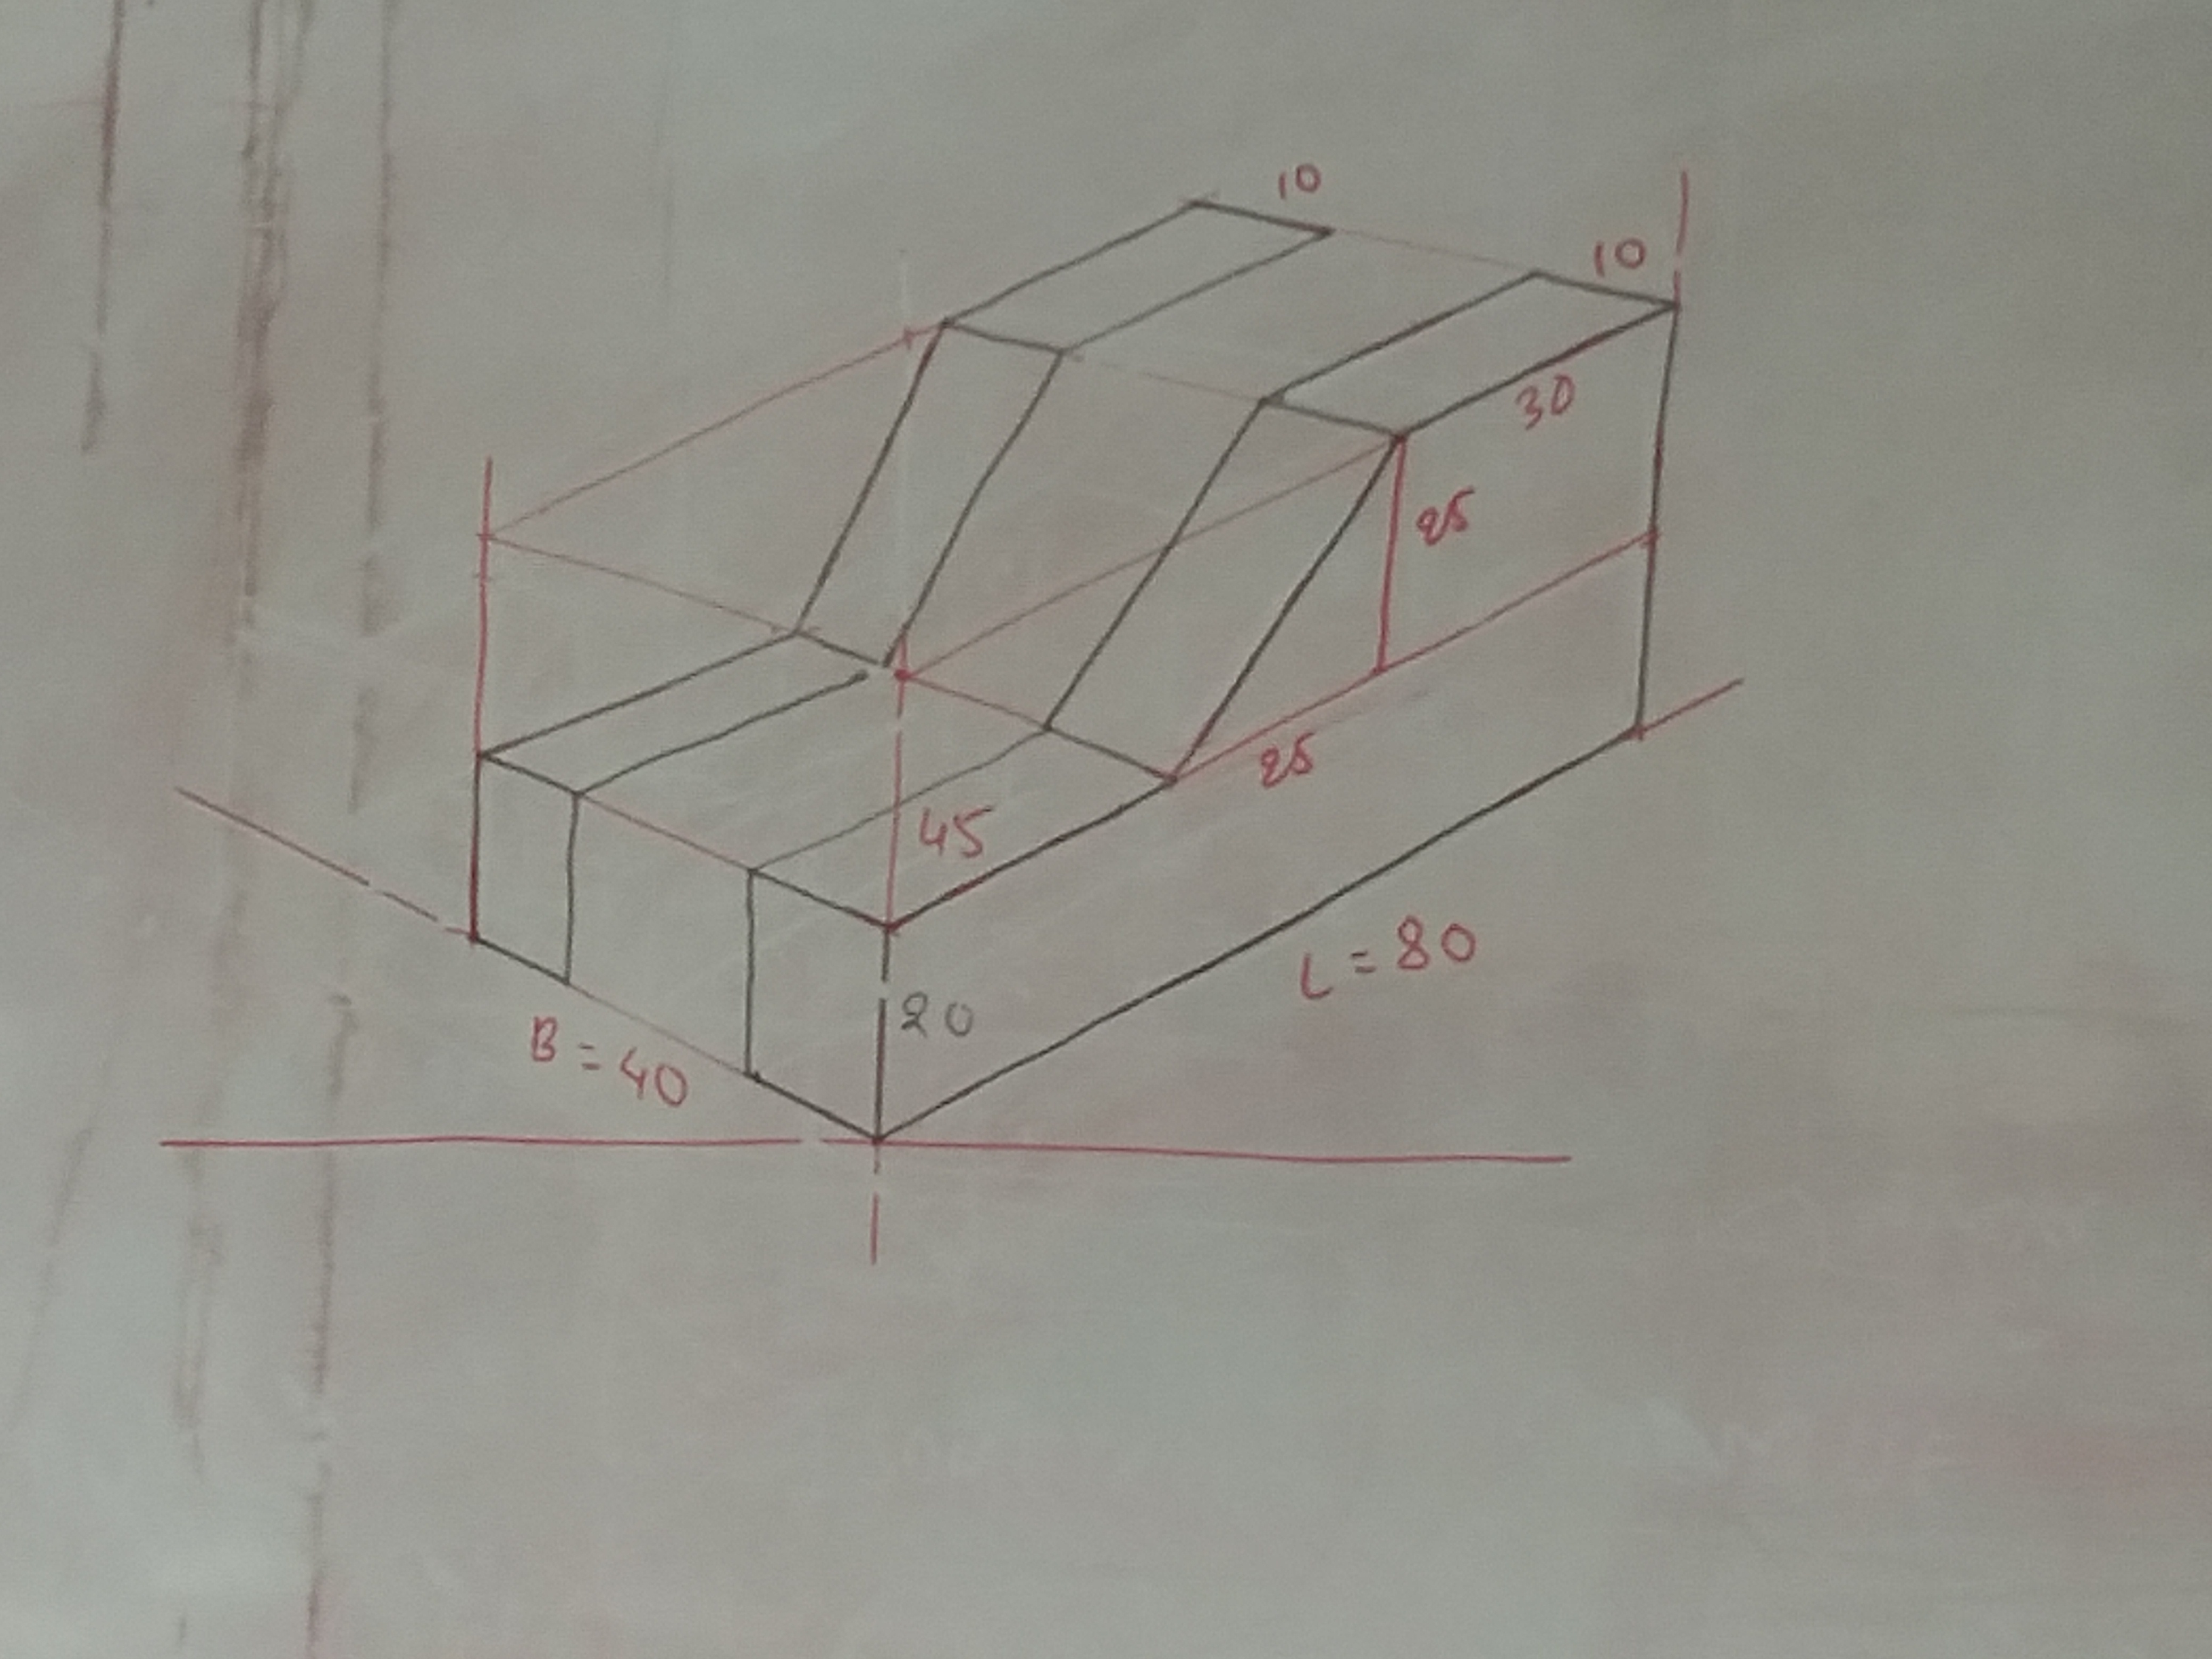 10
10
30
25
25
45
L = 80
20
B = 40